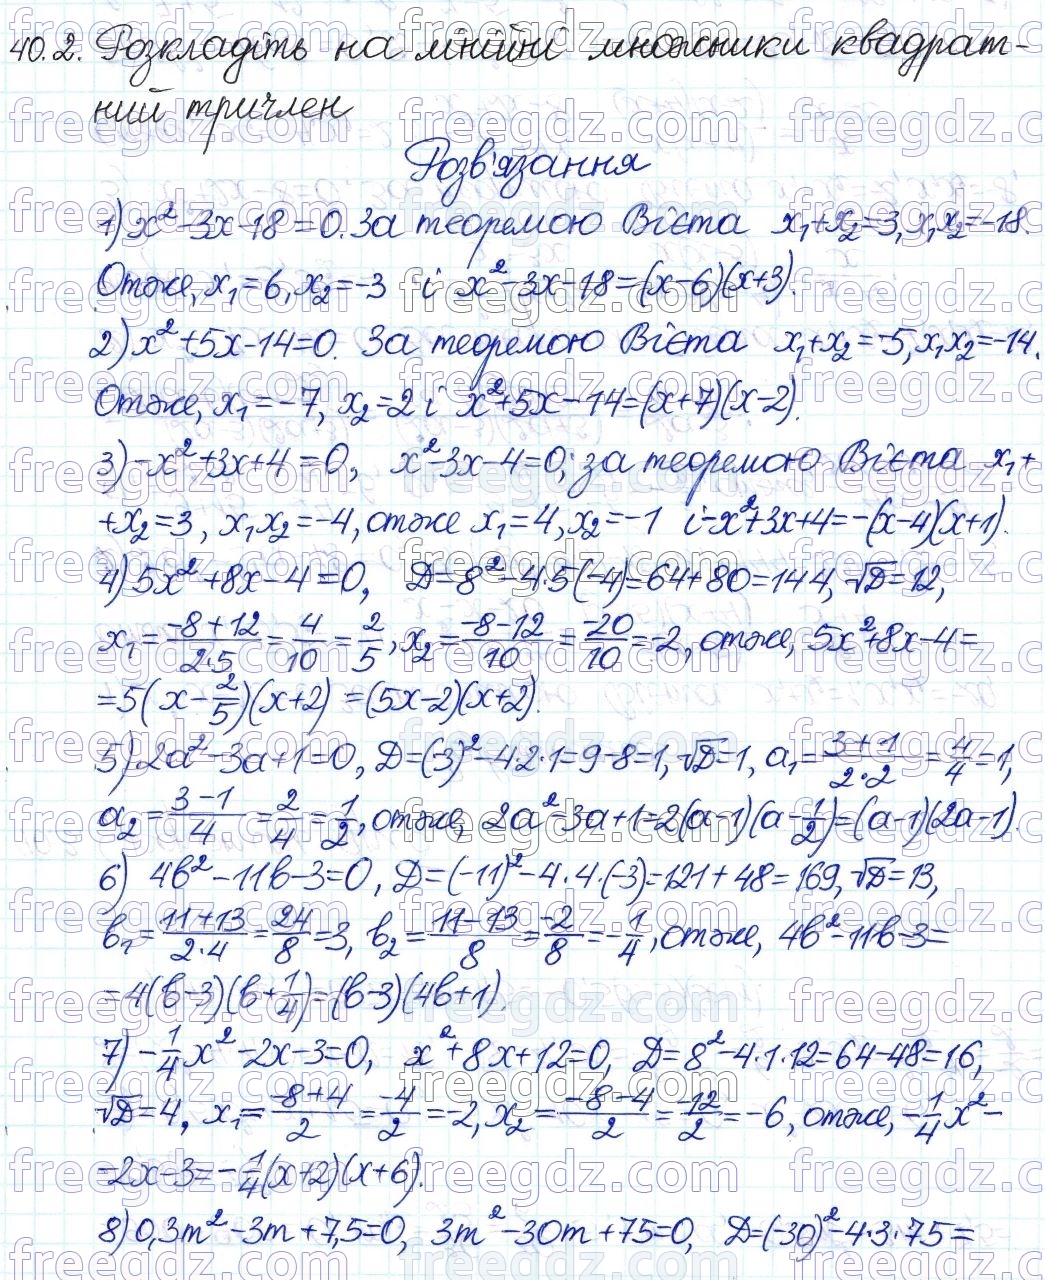 40.2. Розкладіть на лінійні множники квадрат-
ний тричлен
Розв'язання
1) x² - 3x - 18 = 0. За теоремою Вієта x₁ + x₂ = 3, x₁x₂ = -18.
Отже, x₁ = 6, x₂ = -3 і x² - 3x - 18 = (x - 6)(x + 3).
2) x² + 5x - 14 = 0. За теоремою Вієта x₁ + x₂ = -5, x₁x₂ = -14.
Отже, x₁ = -7, x₂ = 2 і x² + 5x - 14 = (x + 7)(x - 2).
3) -x² + 3x + 4 = 0, x² - 3x - 4 = 0; за теоремою Вієта x₁ +
+ x₂ = 3, x₁x₂ = -4, отже x₁ = 4, x₂ = -1 і -x² + 3x + 4 = -(x - 4)(x + 1).
4) 5x² + 8x - 4 = 0, D = 8² - 4·5(-4) = 64 + 80 = 144, √D = 12,
x₁ = (-8 + 12)/(2·5) = 4/10 = 2/5, x₂ = (-8 - 12)/10 = -20/10 = -2, отже, 5x² + 8x - 4 =
= 5(x - 2/5)(x + 2) = (5x - 2)(x + 2).
5) 2a² - 3a + 1 = 0, D = (-3)² - 4·2·1 = 9 - 8 = 1, √D = 1, a₁ = (3 + 1)/(2·2) = 4/4 = 1,
a₂ = (3 - 1)/4 = 2/4 = 1/2, отже, 2a² - 3a + 1 = 2(a - 1)(a - 1/2) = (a - 1)(2a - 1).
6) 4в² - 11в - 3 = 0, D = (-11)² - 4·4·(-3) = 121 + 48 = 169, √D = 13,
в₁ = (11 + 13)/(2·4) = 24/8 = 3, в₂ = (11 - 13)/8 = -2/8 = -1/4, отже, 4в² - 11в - 3 =
= 4(в - 3)(в + 1/4) = (в - 3)(4в + 1).
7) -1/4x² - 2x - 3 = 0, x² + 8x + 12 = 0, D = 8² - 4·1·12 = 64 - 48 = 16,
√D = 4, x₁ = (-8 + 4)/2 = -4/2 = -2, x₂ = (-8 - 4)/2 = -12/2 = -6, отже, -1/4x² -
- 2x - 3 = -1/4(x + 2)(x + 6).
8) 0,3m² - 3m + 7,5 = 0, 3m² - 30m + 75 = 0, D = (-30)² - 4·3·75 =